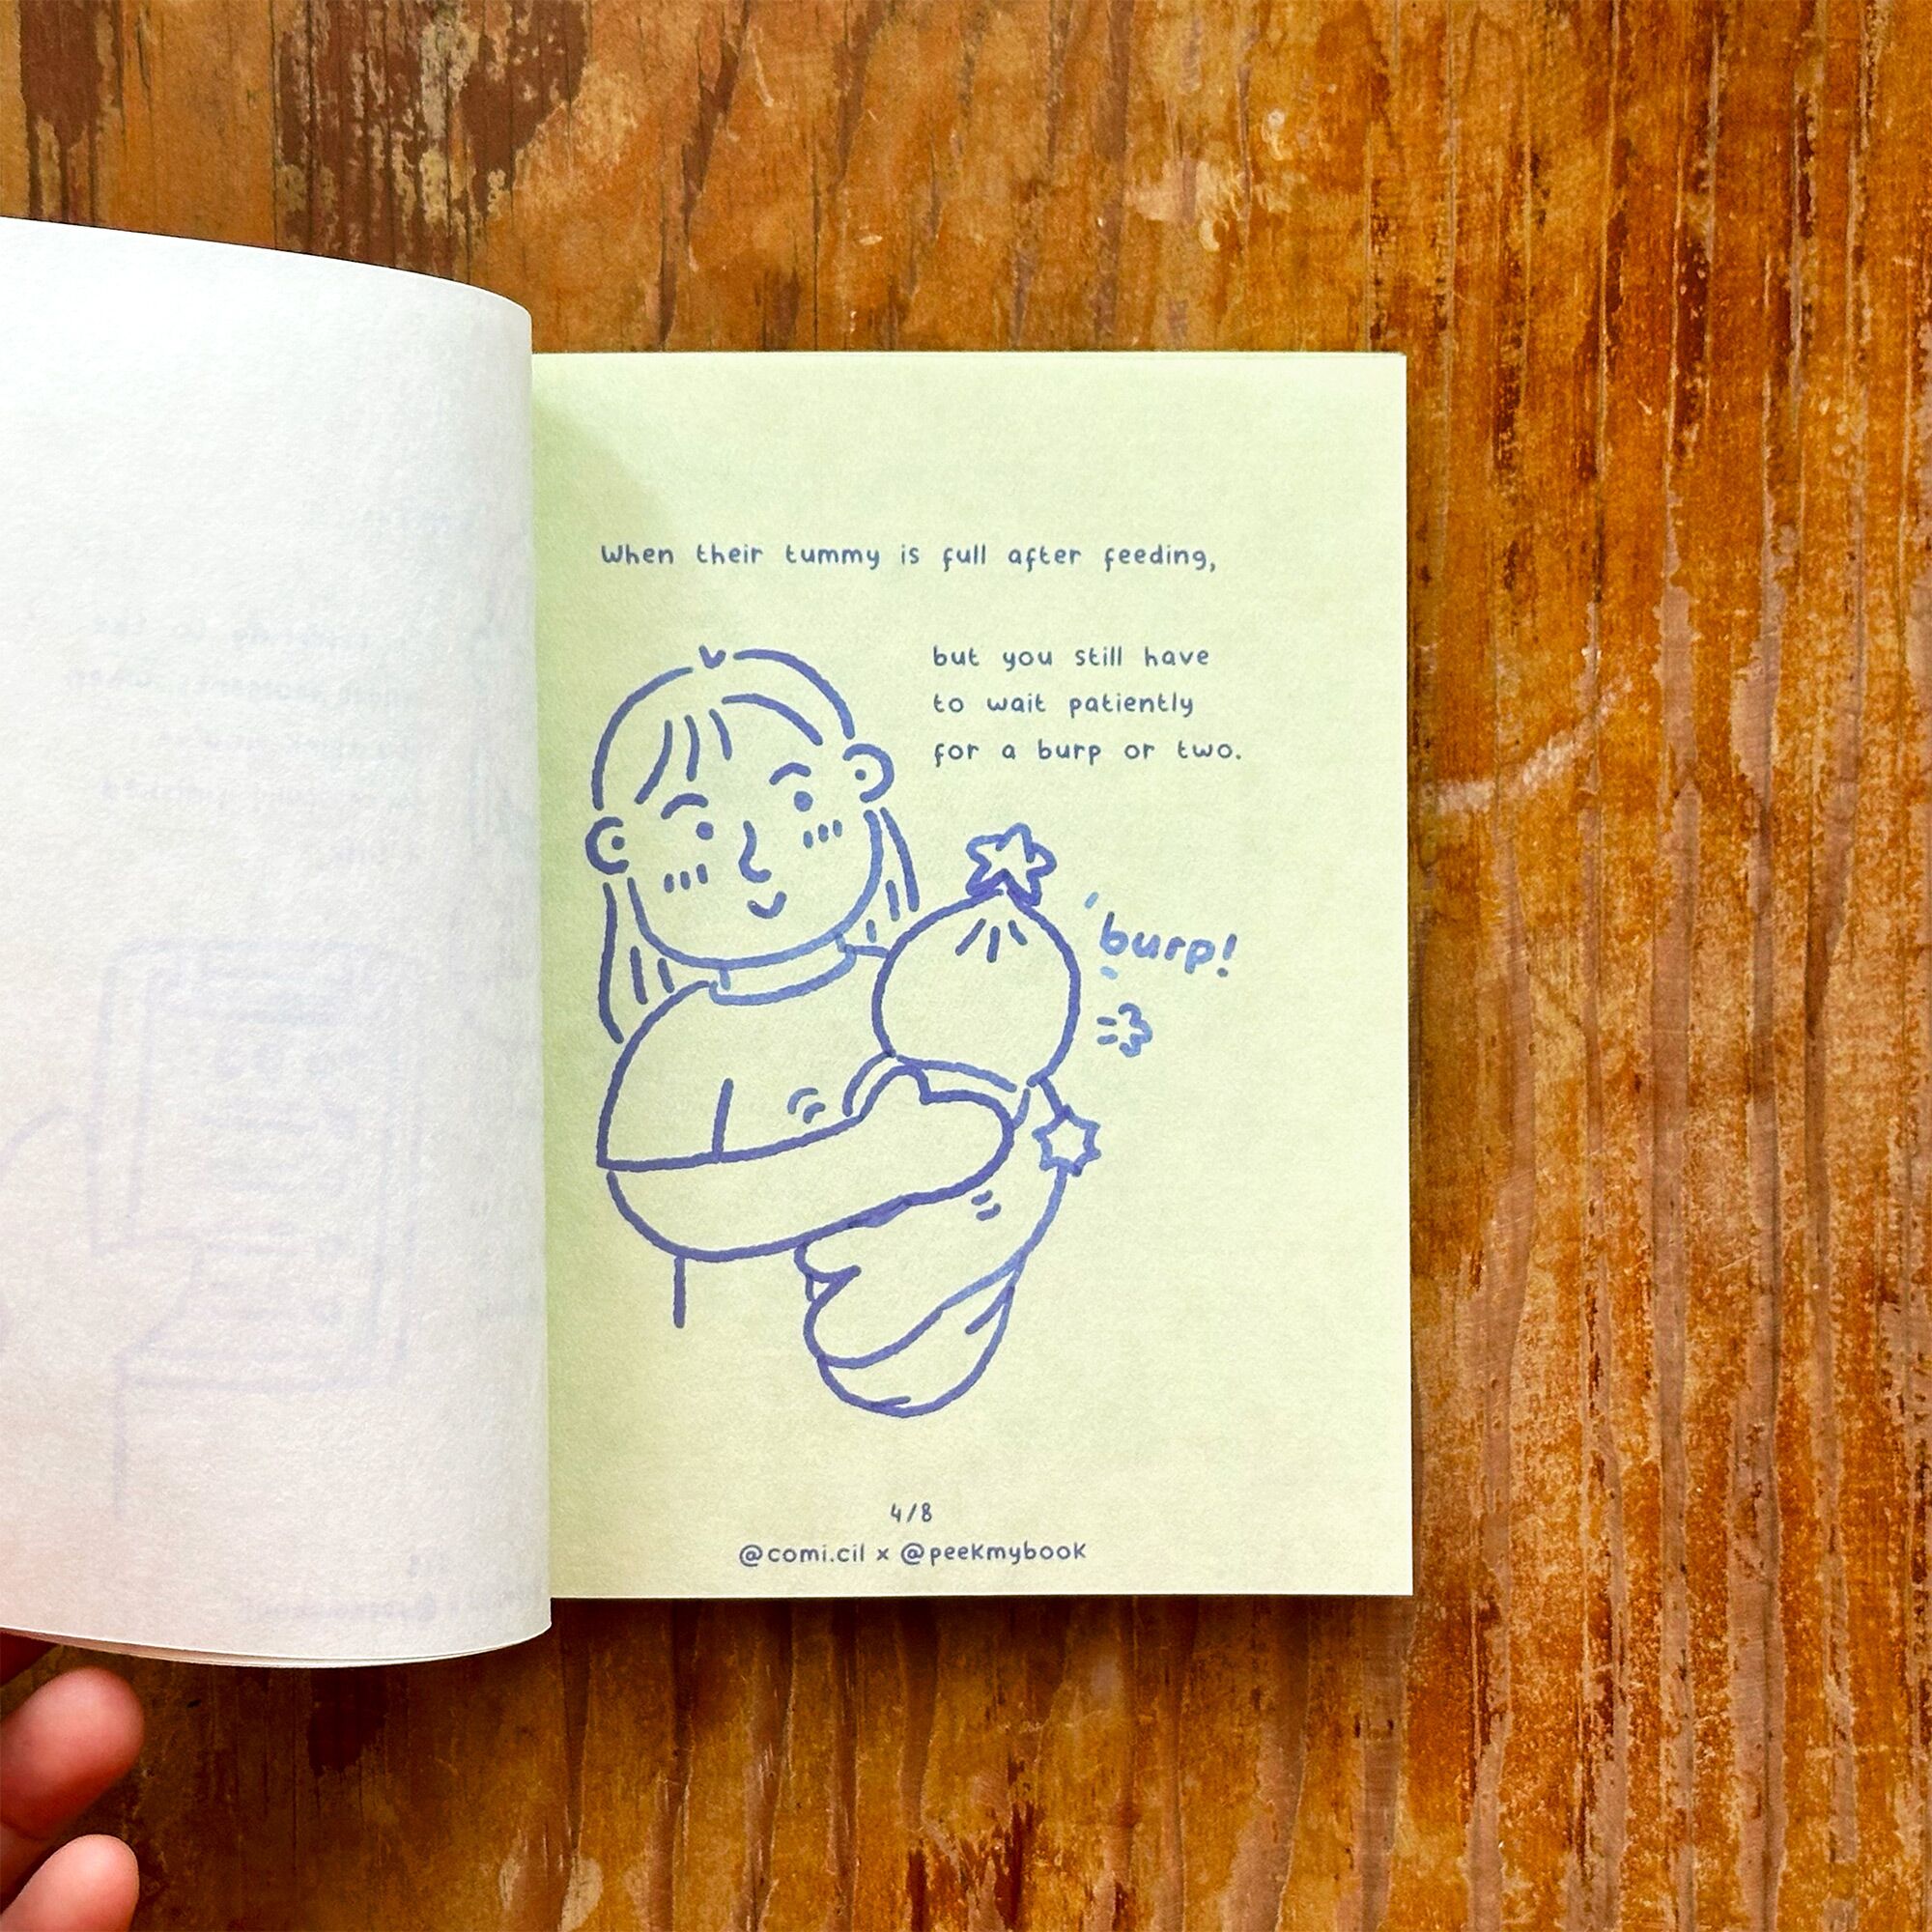 When their tummy is full after feeding,
but you still have
to wait patiently
for a burp or two.
burp!
4/8
@comi.cil x @peekmybook